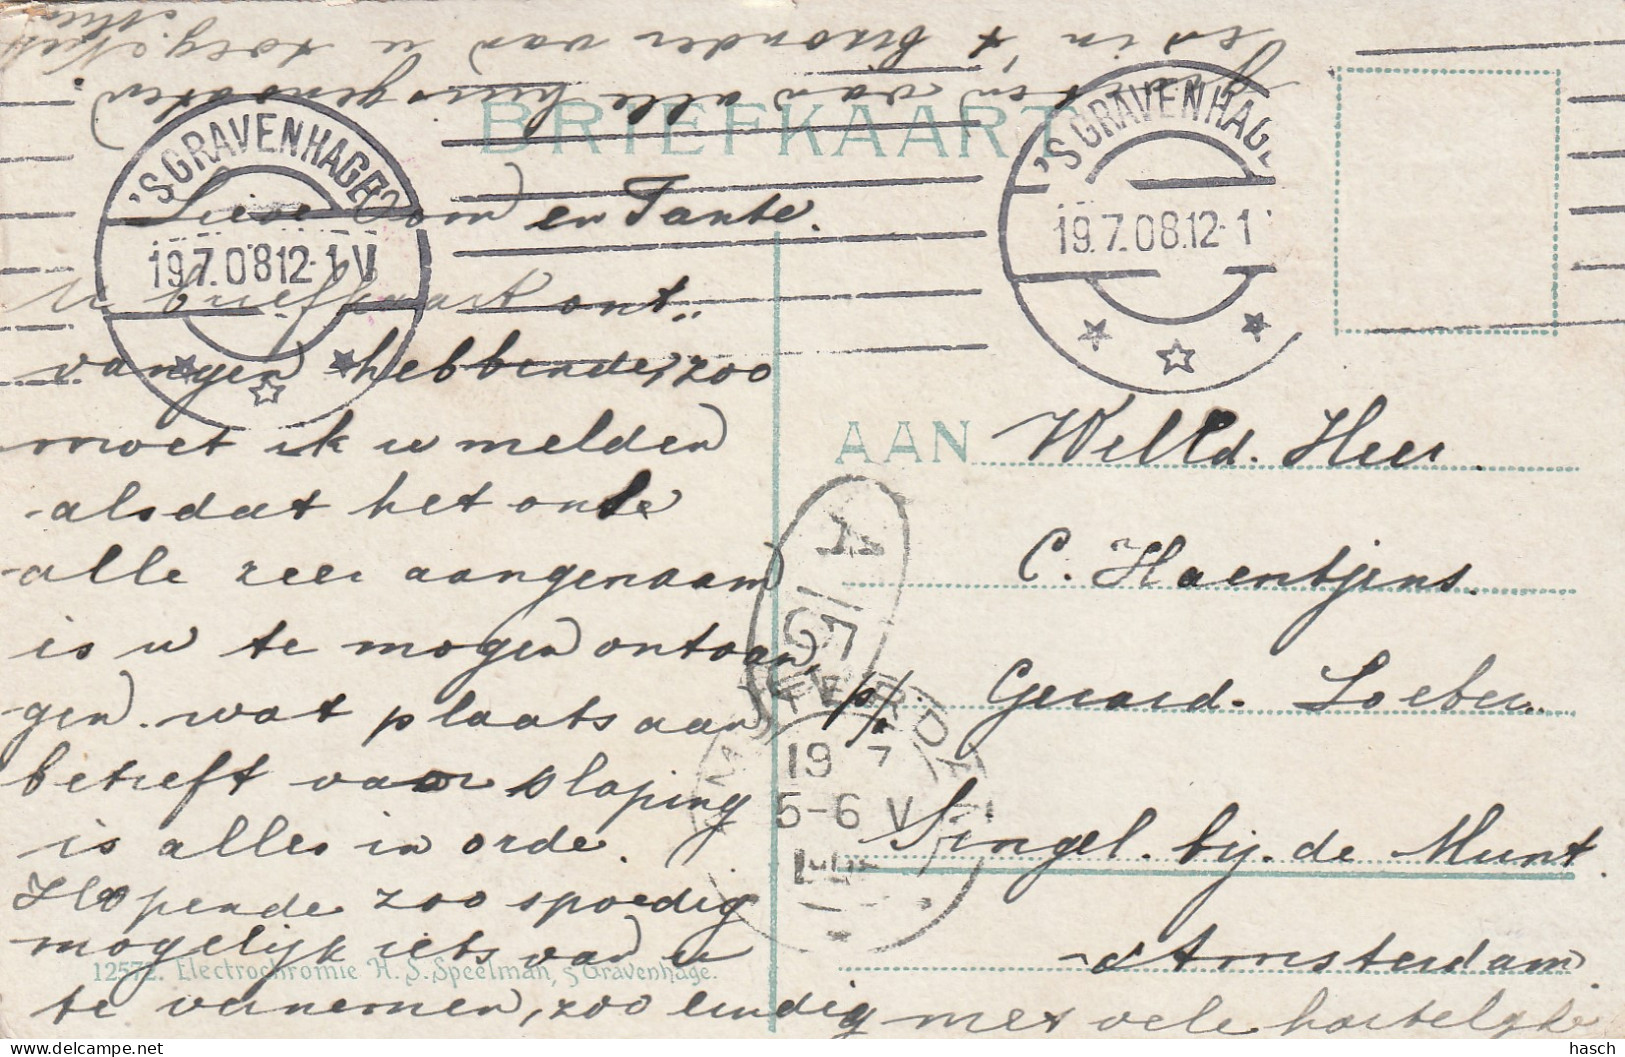 BRIEFKAART
'S GRAVENHAGE
19.7.08.12-1 V
'S GRAVENHAGE
19.7.08.12-1
Lieve Oom en Tante.
U briefkaart ont-
vangen hebbende, zoo
moet ik u melden
alsdat het onse
alle zeer aangenaam
is u te mogen ontvan
gen. wat plaats aan
betreft voor slaping
is alles in orde.
Hopende zoo spoedig
mogelijk iets van u
te vernemen, zoo eindig
met vele hartelijke
en van alle huisgenooten.
en in 't bizonder van u
AAN Weled. Heer.
C. Haentjens.
p/a Gerard. Loeber.
Singel. bij. de Munt.
Amsterdam
AMSTERDAM
19 7
5-6 V
12572. Electrochromie H. S. Speelman, 's Gravenhage.
hasch